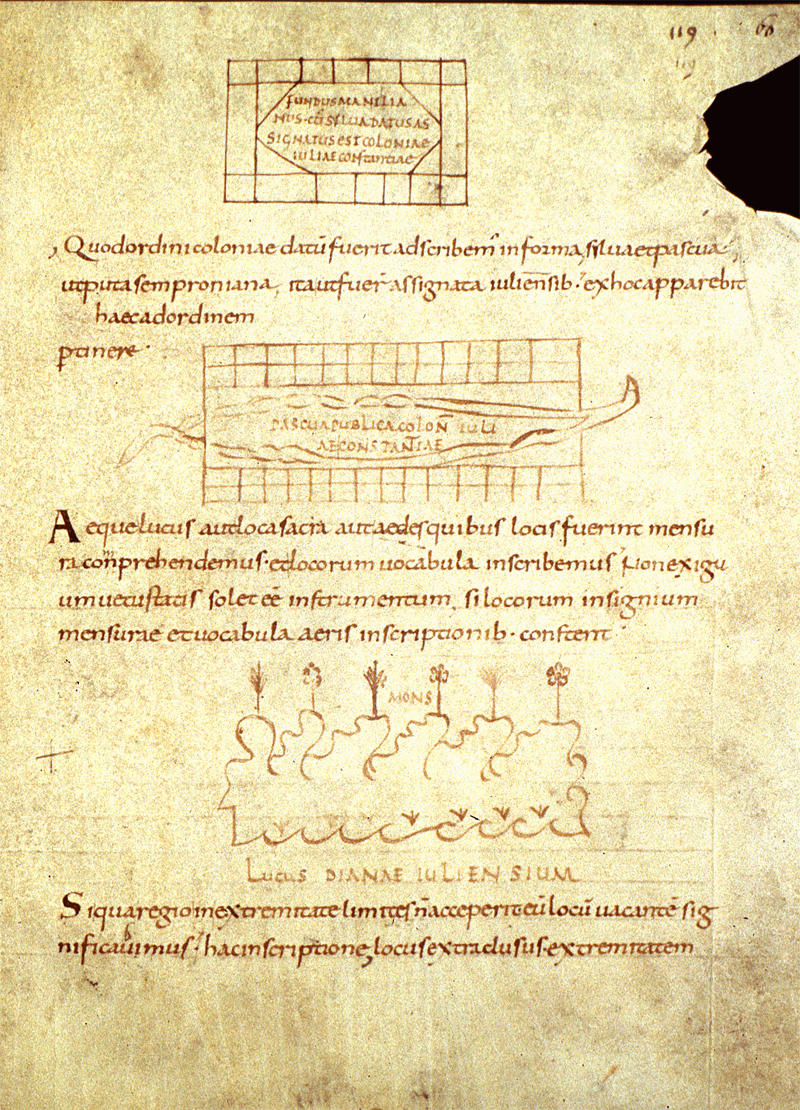 119 60
119
FUNDUS MANILIA
NUS · CŪ SILUA DATUS AS
SIGNATUS EST COLONIAE
IULIAE CONstantiae
Quod ordini coloniae datū fuerit adscribem' in forma, silua et pascua,
utputa semproniana, ita ut fuer̄ assignata iuliensib· ex hoc apparebit
haec ad ordinem
ptinere·
PASCUA PUBLICA COLON̄ IULI
AE CONSTANTIAE
Aeque lucus aut loca sacra aut aedes quibus locis fuerint mensu
ra conprehendemus· et locorum uocabula inscribemus Non exigu
um uetustatis solet eē instrumentum, si locorum insignium
mensurae et uocabula aeris inscriptionib· constent
MONS
LUCUS DIANAE IULIENSIUM
Si qua regio in extremitate limites n̄ acceperit eū locū uacantē sig
nificauimus· hac inscriptione, locus extraclusus· extremitatem